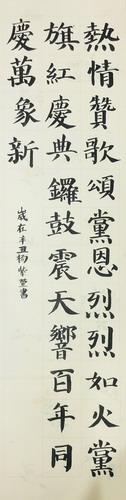 熱情贊歌頌黨恩烈烈如火黨
旗紅慶典鑼鼓震天響百年同
慶萬象新
歲在辛丑杨紫萱書